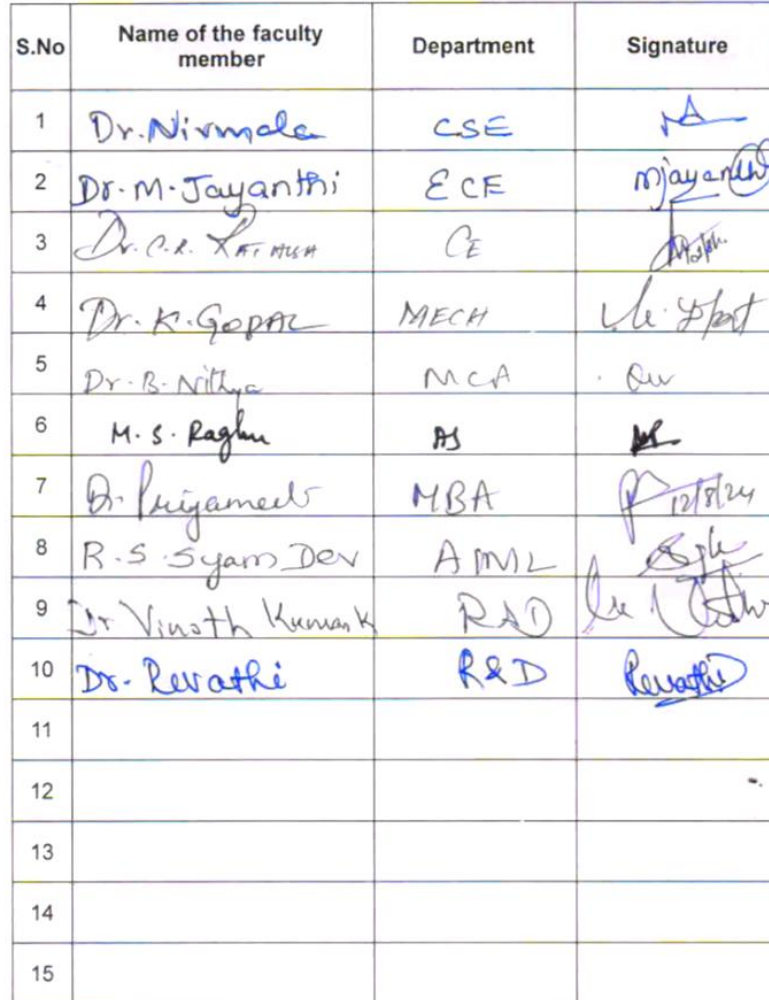 S.No Name of the faculty member Department Signature
1 Dr. Nirmala CSE
2 Dr. M. Jayanthi ECE Mjayanthi
3 Dr. C.R. CE
4 Dr. K. GOPAL MECH
5 Dr. B. Nithya MCA
6 M. S. Raghu AS
7 MBA 12/8/24
8 R. S. Syam Dev AIML
9 Dr Vinoth Kumar K R&D
10 Dr. Revathi R&D Revathi
11
12
13
14
15